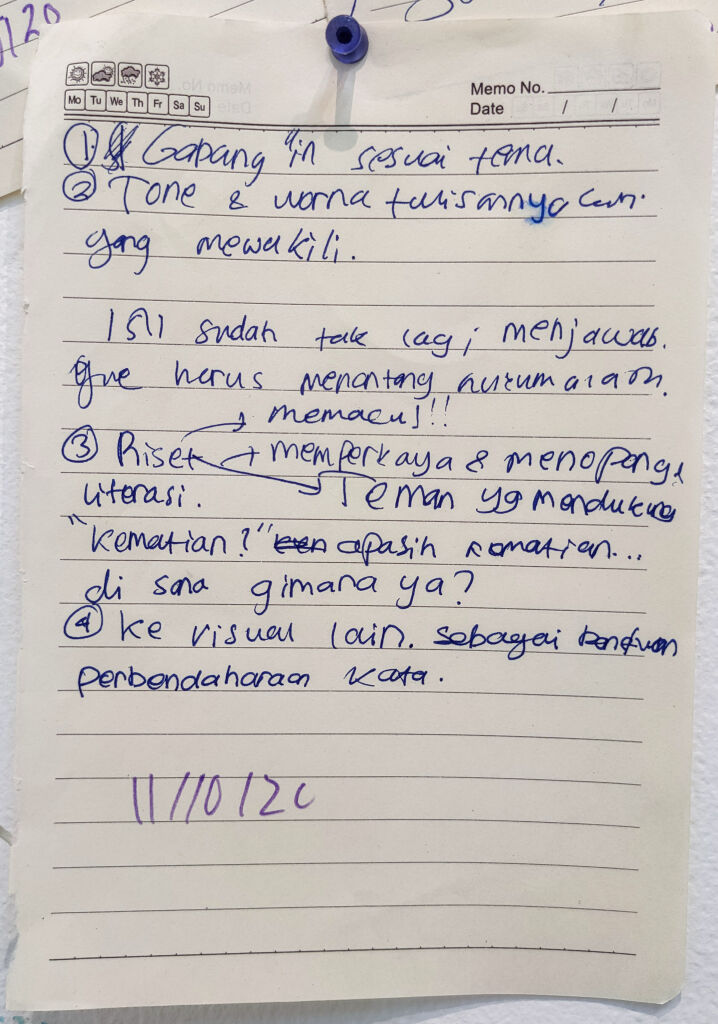 /20
Mo Tu We Th Fr Sa Su
Memo No.
Date / /
① Gabang "in sesuai tema.
② Tone & warna tulisannya
yang mewakili.
Isi sudah tak lagi menjawab.
gue harus menantang
memacu!!
③ Riset memperkaya & menopang
literasi. Teman yg mendukung
"kematian?" apasih kematian...
di sana gimana ya?
④ ke visual lain. sebagai
perbendaharaan kata.
11/10/20